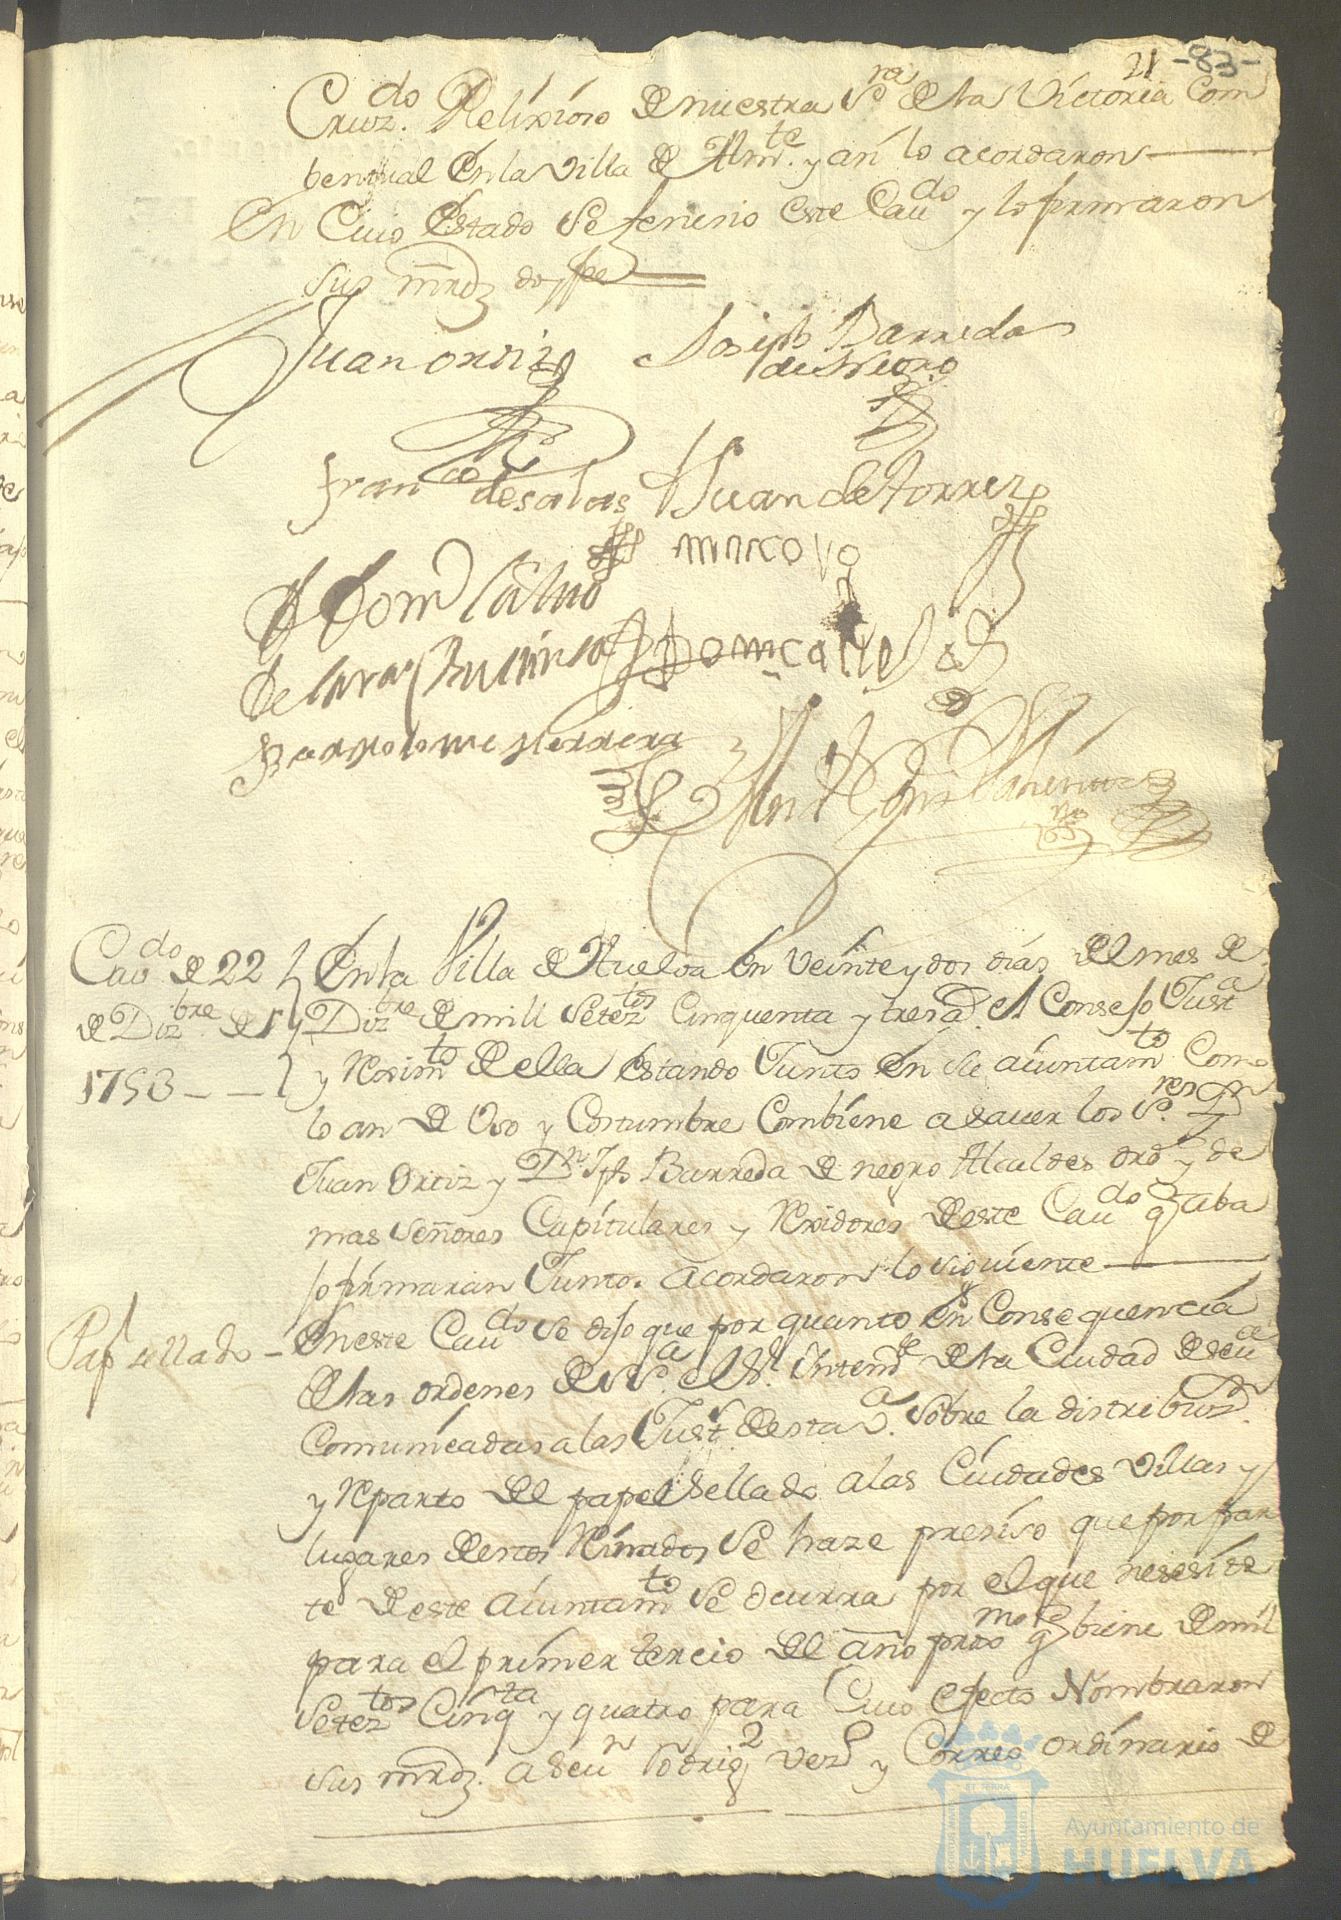 21 -83-
Cruz.do Relixioso de nuestra S.ra de la Victoria Com
bentual en la villa de Alm.te y asi lo acordaron
En Cuio Estado Se fenecio este Cau.do y lo firmaron
sus mrds doy fee
Juan ortiz Joseph Barreda
de Negro
fran.co de salas Juan de torrez
marcovo
D Dom Calvo
de lara
Bartolome Herrera
Cavdo de 22 En la Villa de Huelva en veinte y dos dias del mes de
de Dizbre de Dizbre de mill Setez.tos Cinquenta y tres a.s el Consejo Just.a
1753 y Reximto de ella estando Junto en su aiuntam.to Como
lo an de Vso y Costumbre Combiene a sauer los S.res Dn
Juan Ortiz y Dn Jph Barreda de negro Alcaldes ord.s y de
mas señores Capitulares y Rexidores de este Caudo q aba
jo firmaran Junto. acordaron lo siguiente
Pap.l sellado - En este Caudo se dijo que por quanto en Consequencia
de las ordenes de el S.r Intend.te de la Ciudad de seu.a
Comunicadas a las Just.s de esta V.a sobre la distribuz.n
y Reparto del papel sellado a las Ciudades villas y
lugares de estos Reinados Se haze presiso que por par
te de este aiuntam.to Se ocurra por el que nesesite
para el primer tercio del año proximo q biene de mil
Setez.tos Cinq.ta y quatro para Cuio efecto Nombraron
sus mrds. a Rodrig.z vez.o y Correo ordinario de
Ayuntamiento de
HUELVA